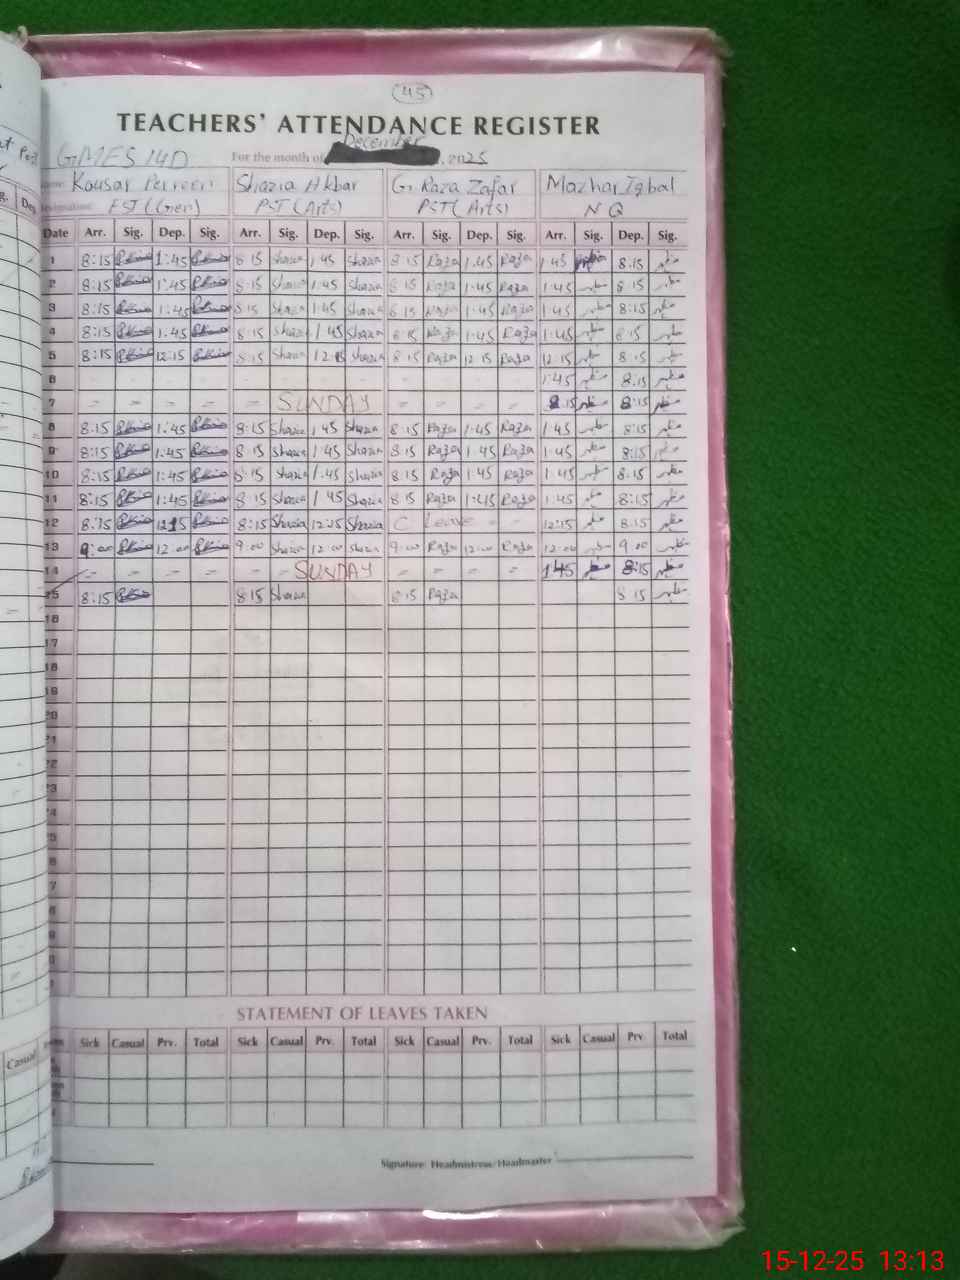 (45)
TEACHERS' ATTENDANCE REGISTER
December
GMES 14D For the month of 2025
Kousar Perveen Shazia Akbar G. Raza Zafar Mazhar Iqbal
EST (Gen) PST (Arts) PST (Arts) N Q
Date Arr. Sig. Dep. Sig. Arr. Sig. Dep. Sig. Arr. Sig. Dep. Sig. Arr. Sig. Dep. Sig.
1 8:15 1:45 8 15 Shazia 1 45 Shazia 8 15 Raza 1.45 Raza 1 45 مظہر 8:15 مظہر
2 8:15 1:45 8:15 Shazia 1:45 Shazia 8 15 Raza 1:45 Raza 1:45 مظہر 8 15 مظہر
3 8:15 1:45 8 15 Shazia 1:45 Shazia 8 15 Raza 1:45 Raza 1:45 مظہر 8:15 مظہر
4 8:15 1.45 8:15 Shazia 1 45 Shazia 8 15 Raza 1:45 Raza 1:45 مظہر 8:15 مظہر
5 8:15 12:15 8:15 Shazia 12:15 Shazia 8 15 Raza 12 15 Raza 12:15 مظہر 8 15 مظہر
6 - - - - - - - - - - - - 1:45 مظہر 8:15 مظہر
7 = = = = = SUNDAY = = = = 8 15 مظہر 8:15 مظہر
8 8:15 1:45 8:15 Shazia 1 45 Shazia 8:15 Raza 1:45 Raza 1:45 مظہر 8:15 مظہر
9 8:15 1:45 8 15 Shazia 1:45 Shazia 8:15 Raza 1:45 Raza 1:45 مظہر 8:15 مظہر
10 8:15 1:45 8:15 Shazia 1:45 Shazia 8:15 Raza 1:45 Raza 1:45 مظہر 8:15 مظہر
11 8:15 1:45 8:15 Shazia 1 45 Shazia 8 15 Raza 1:45 Raza 1:45 مظہر 8:15 مظہر
12 8:15 12 15 8:15 Shazia 12:15 Shazia C Leave - - 12:15 مظہر 8:15 مظہر
13 9:00 12:00 9:00 Shazia 12 00 Shazia 9:00 Raza 12:00 Raza 12:00 مظہر 9 00 مظہر
14 = = = = = SUNDAY = = = = 1:45 مظہر 8:15 مظہر
15 8:15 8 15 Shazia 8 15 Raza 8 15 مظہر
16
17
18
19
20
21
22
23
24
25
STATEMENT OF LEAVES TAKEN
Sick Casual Prv. Total Sick Casual Prv. Total Sick Casual Prv. Total Sick Casual Prv. Total
Casual
Signature: Headmistress/Headmaster
15-12-25 13:13